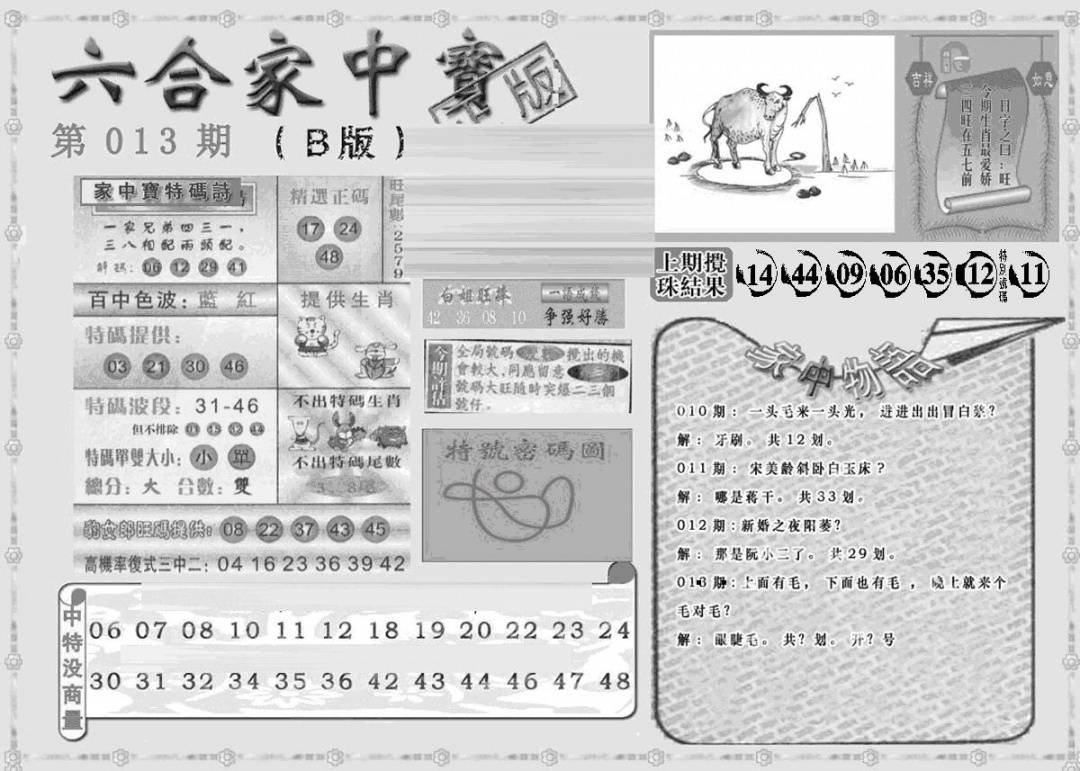 六合家中寶
版
第013期 (B版)
家中寶特碼詩
一家兄弟四三一，
三八相配兩頭配。
解碼：06 12 29 41
精選正碼
17 24
48
旺尾數:2579
百中色波：藍 紅
提供生肖
特碼提供：
03 21 30 46
特碼波段：31-46
但不排除
特碼單雙大小：小 單
總分：大 合數：雙
不出特碼生肖
不出特碼尾數
旺碼提供：08 22 37 43 45
高機率復式三中二：04 16 23 36 39 42
白姐旺棒
一語成籤
42 36 08 10
争强好勝
今期評估
全局號碼 攪出的機
會較大，同應留意
號碼大旺隨時突爆二三個
號仔。
特號密碼圖
吉祥
如意
一日字之曰：旺
今期生肖最爱娇
三四旺在五七前
上期攪珠結果
14 44 09 06 35 12 特别號碼 11
家中物語
010期：一头毛来一头光，进进出出冒白浆？
解：牙刷。共12划。
011期：宋美龄斜卧白玉床？
解：哪是蒋干。共33划。
012期：新婚之夜阳萎？
解：那是阮小二了。共29划。
013期：上面有毛，下面也有毛，晚上就来个
毛对毛？
解：眼睫毛。共？划。开？号
中特没商量
06 07 08 10 11 12 18 19 20 22 23 24
30 31 32 34 35 36 42 43 44 46 47 48